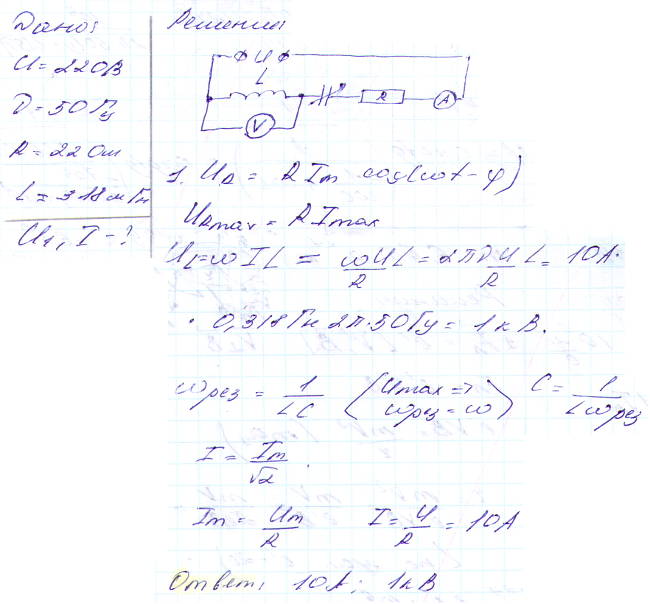 Дано:
U = 220В
ν = 50Гц
R = 22 Ом
L = 318 мГн
U₁, I - ?
Решение
U
L
R
A
V
1. U_R = R I_m cos(ωt - φ)
U_Rmax = R I_max
U_L = ω I L = ωU/R L = 2πν U/R L = 10А ·
· 0,318 Гн 2π · 50Гц = 1кВ.
ω_рез = 1/LC (U_max => ω_рез = ω) C = 1/Lω_рез
I = I_m/√2.
I_m = U_m/R I = U/R = 10А
Ответ: 10А; 1кВ